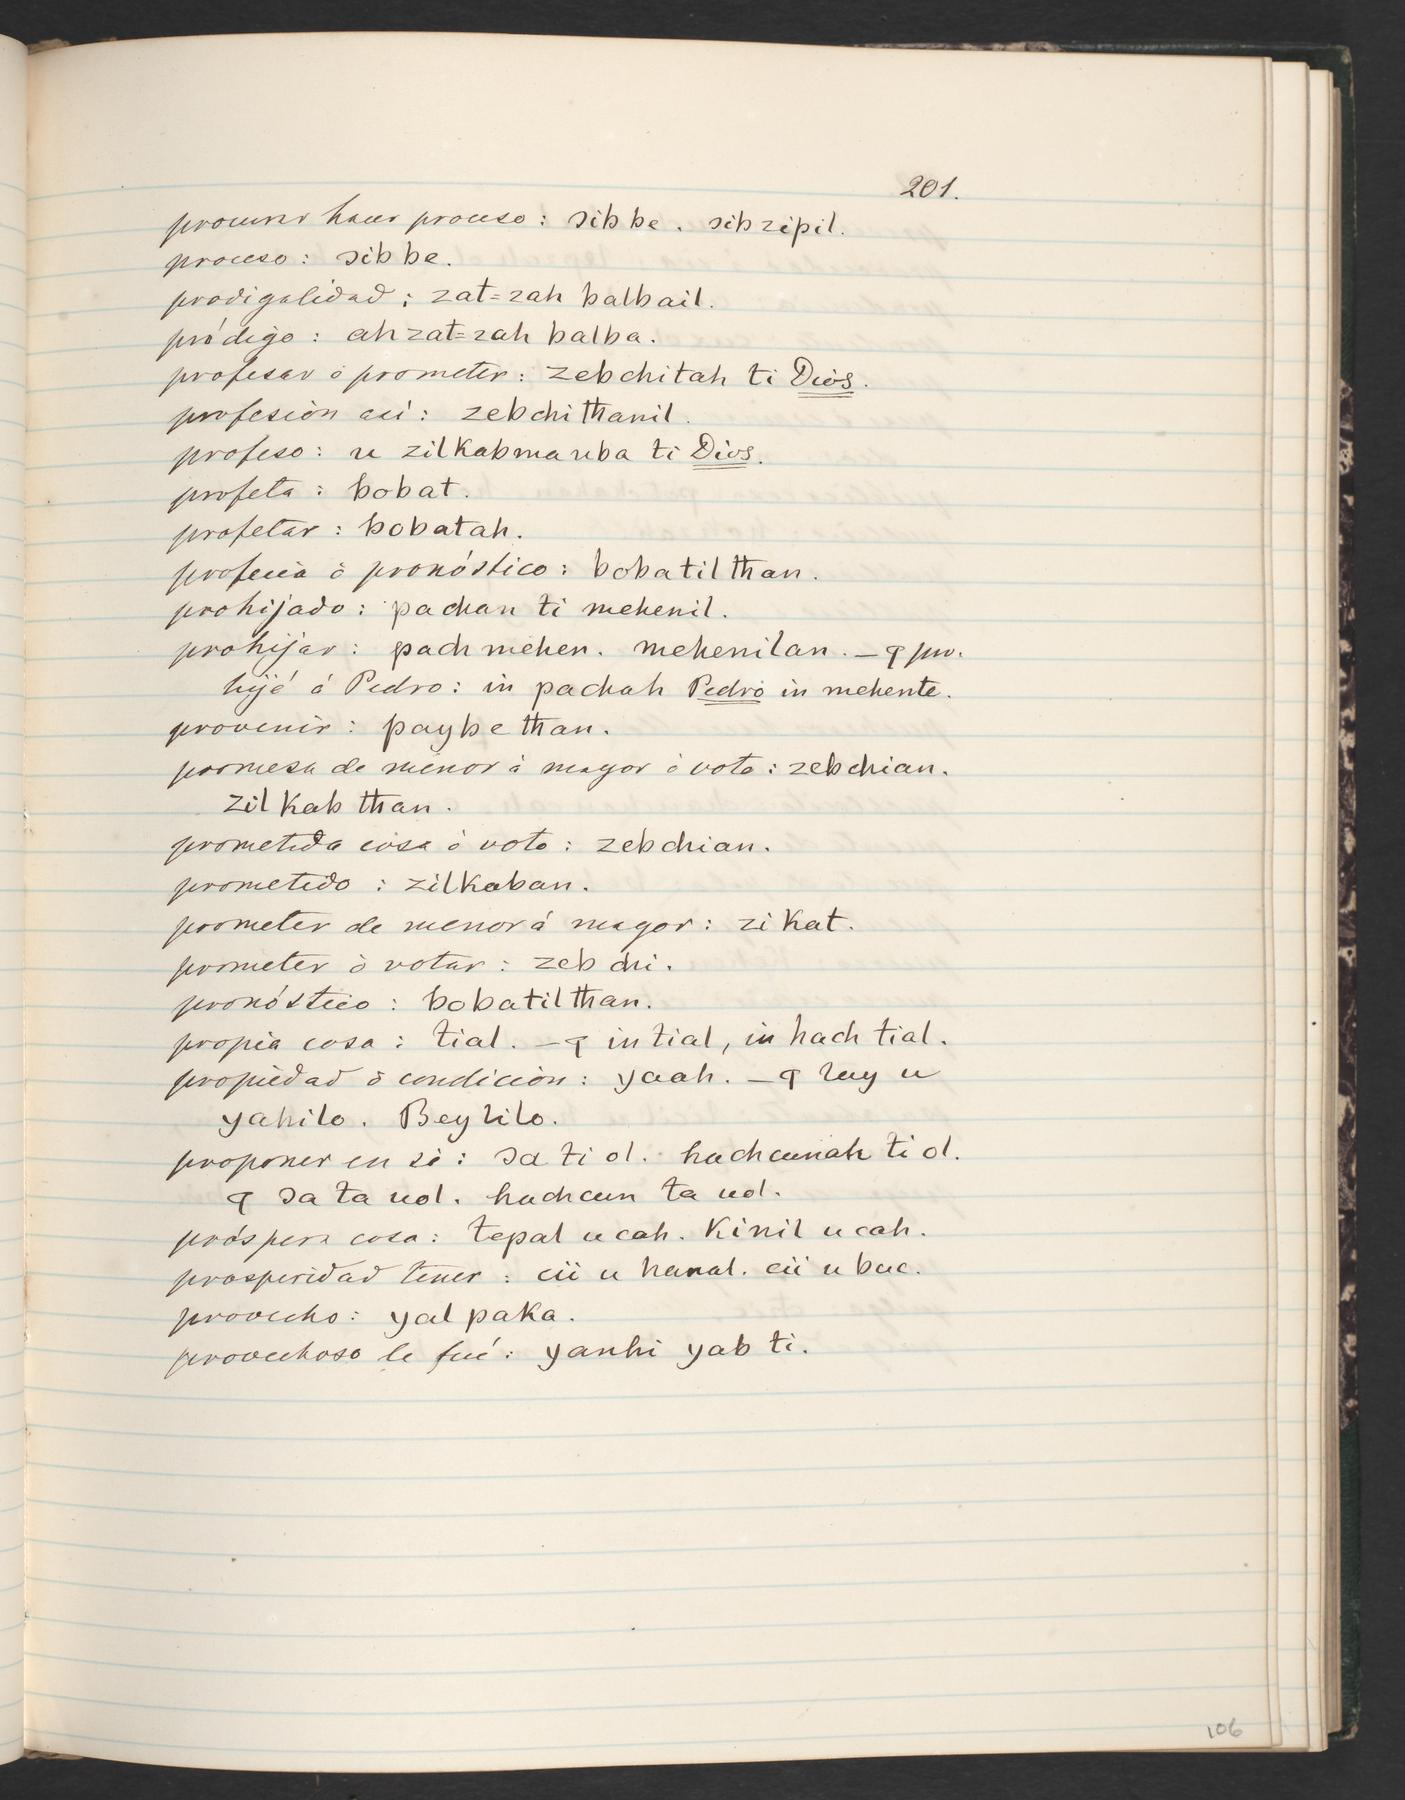 201.
procurar hacer proceso: ɔibbe. ɔibzipil.
proceso: ɔibbe.
prodigalidad: zat=zah balbail.
pródigo: ah zat=zah balba.
profesar ó prometer: zebchitah ti Dios.
profesion así: zebchi tħanil.
profeso: u zilkabma uba ti Dios.
profeta: bobat.
profetar: bobatah.
profecia ó pronóstico: bobatil tħan.
prohijado: pachan ti mehenil.
prohijar: pach mehen. mehenilan. _ ꟼ pro.
hijé á Pedro: in pachah Pedro in mehente.
provenir: paybe tħan.
promesa de menor á mayor ó voto: zebchian.
zilkab tħan.
prometida cosa ó voto: zebchian.
prometido: zilkaban.
prometer de menor á mayor: zikat.
prometer ó votar: zebchi.
pronóstico: bobatil tħan.
propia cosa: tial. _ ꟼ in tial, in hach tial.
propiedad ó condicion: yaah. _ ꟼ lay u
yahilo. Beylilo.
proponer en sí: ɔa ti ol. hachcunah ti ol.
ꟼ ɔa ta uol. hachcun ta uol.
próspera cosa: tepal u cah. Kinil u cah.
prosperidad tener: cii u hanal. cii u bac.
provecho: yal paka.
provechoso le fué: yanhi yab ti.
106